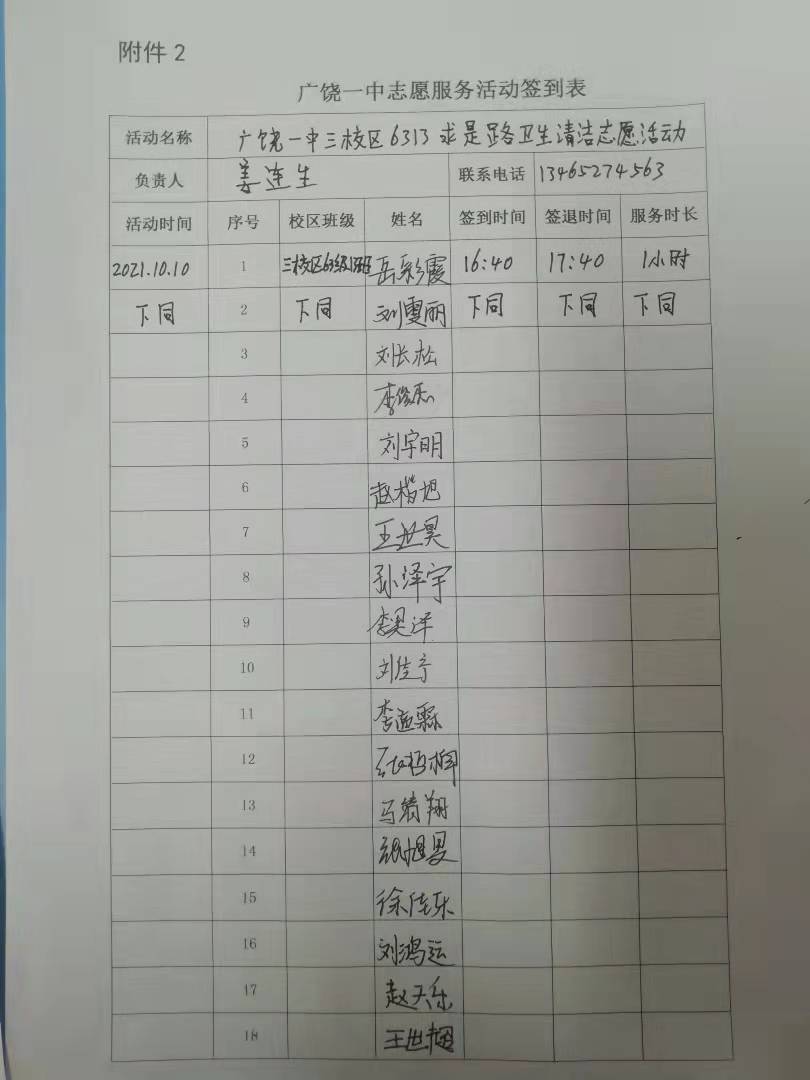 附件 2
广饶一中志愿服务活动签到表
活动名称 广饶一中三校区6313求是路卫生清洁志愿活动
负责人 姜连生 联系电话 13465274563
活动时间 序号 校区班级 姓名 签到时间 签退时间 服务时长
2021.10.10 1 三校区63级13班 岳彩霞 16:40 17:40 1小时
下同 2 下同 刘雯丽 下同 下同 下同
3 刘长松
4 李俊杰
5 刘宇明
6 赵楷旭
7 王世昊
8 孙泽宇
9 李昊洋
10 刘佳宁
11 李迦霖
12
13 马靖翔
14
15 徐佳乐
16 刘鸿运
17 赵天乐
18 王世